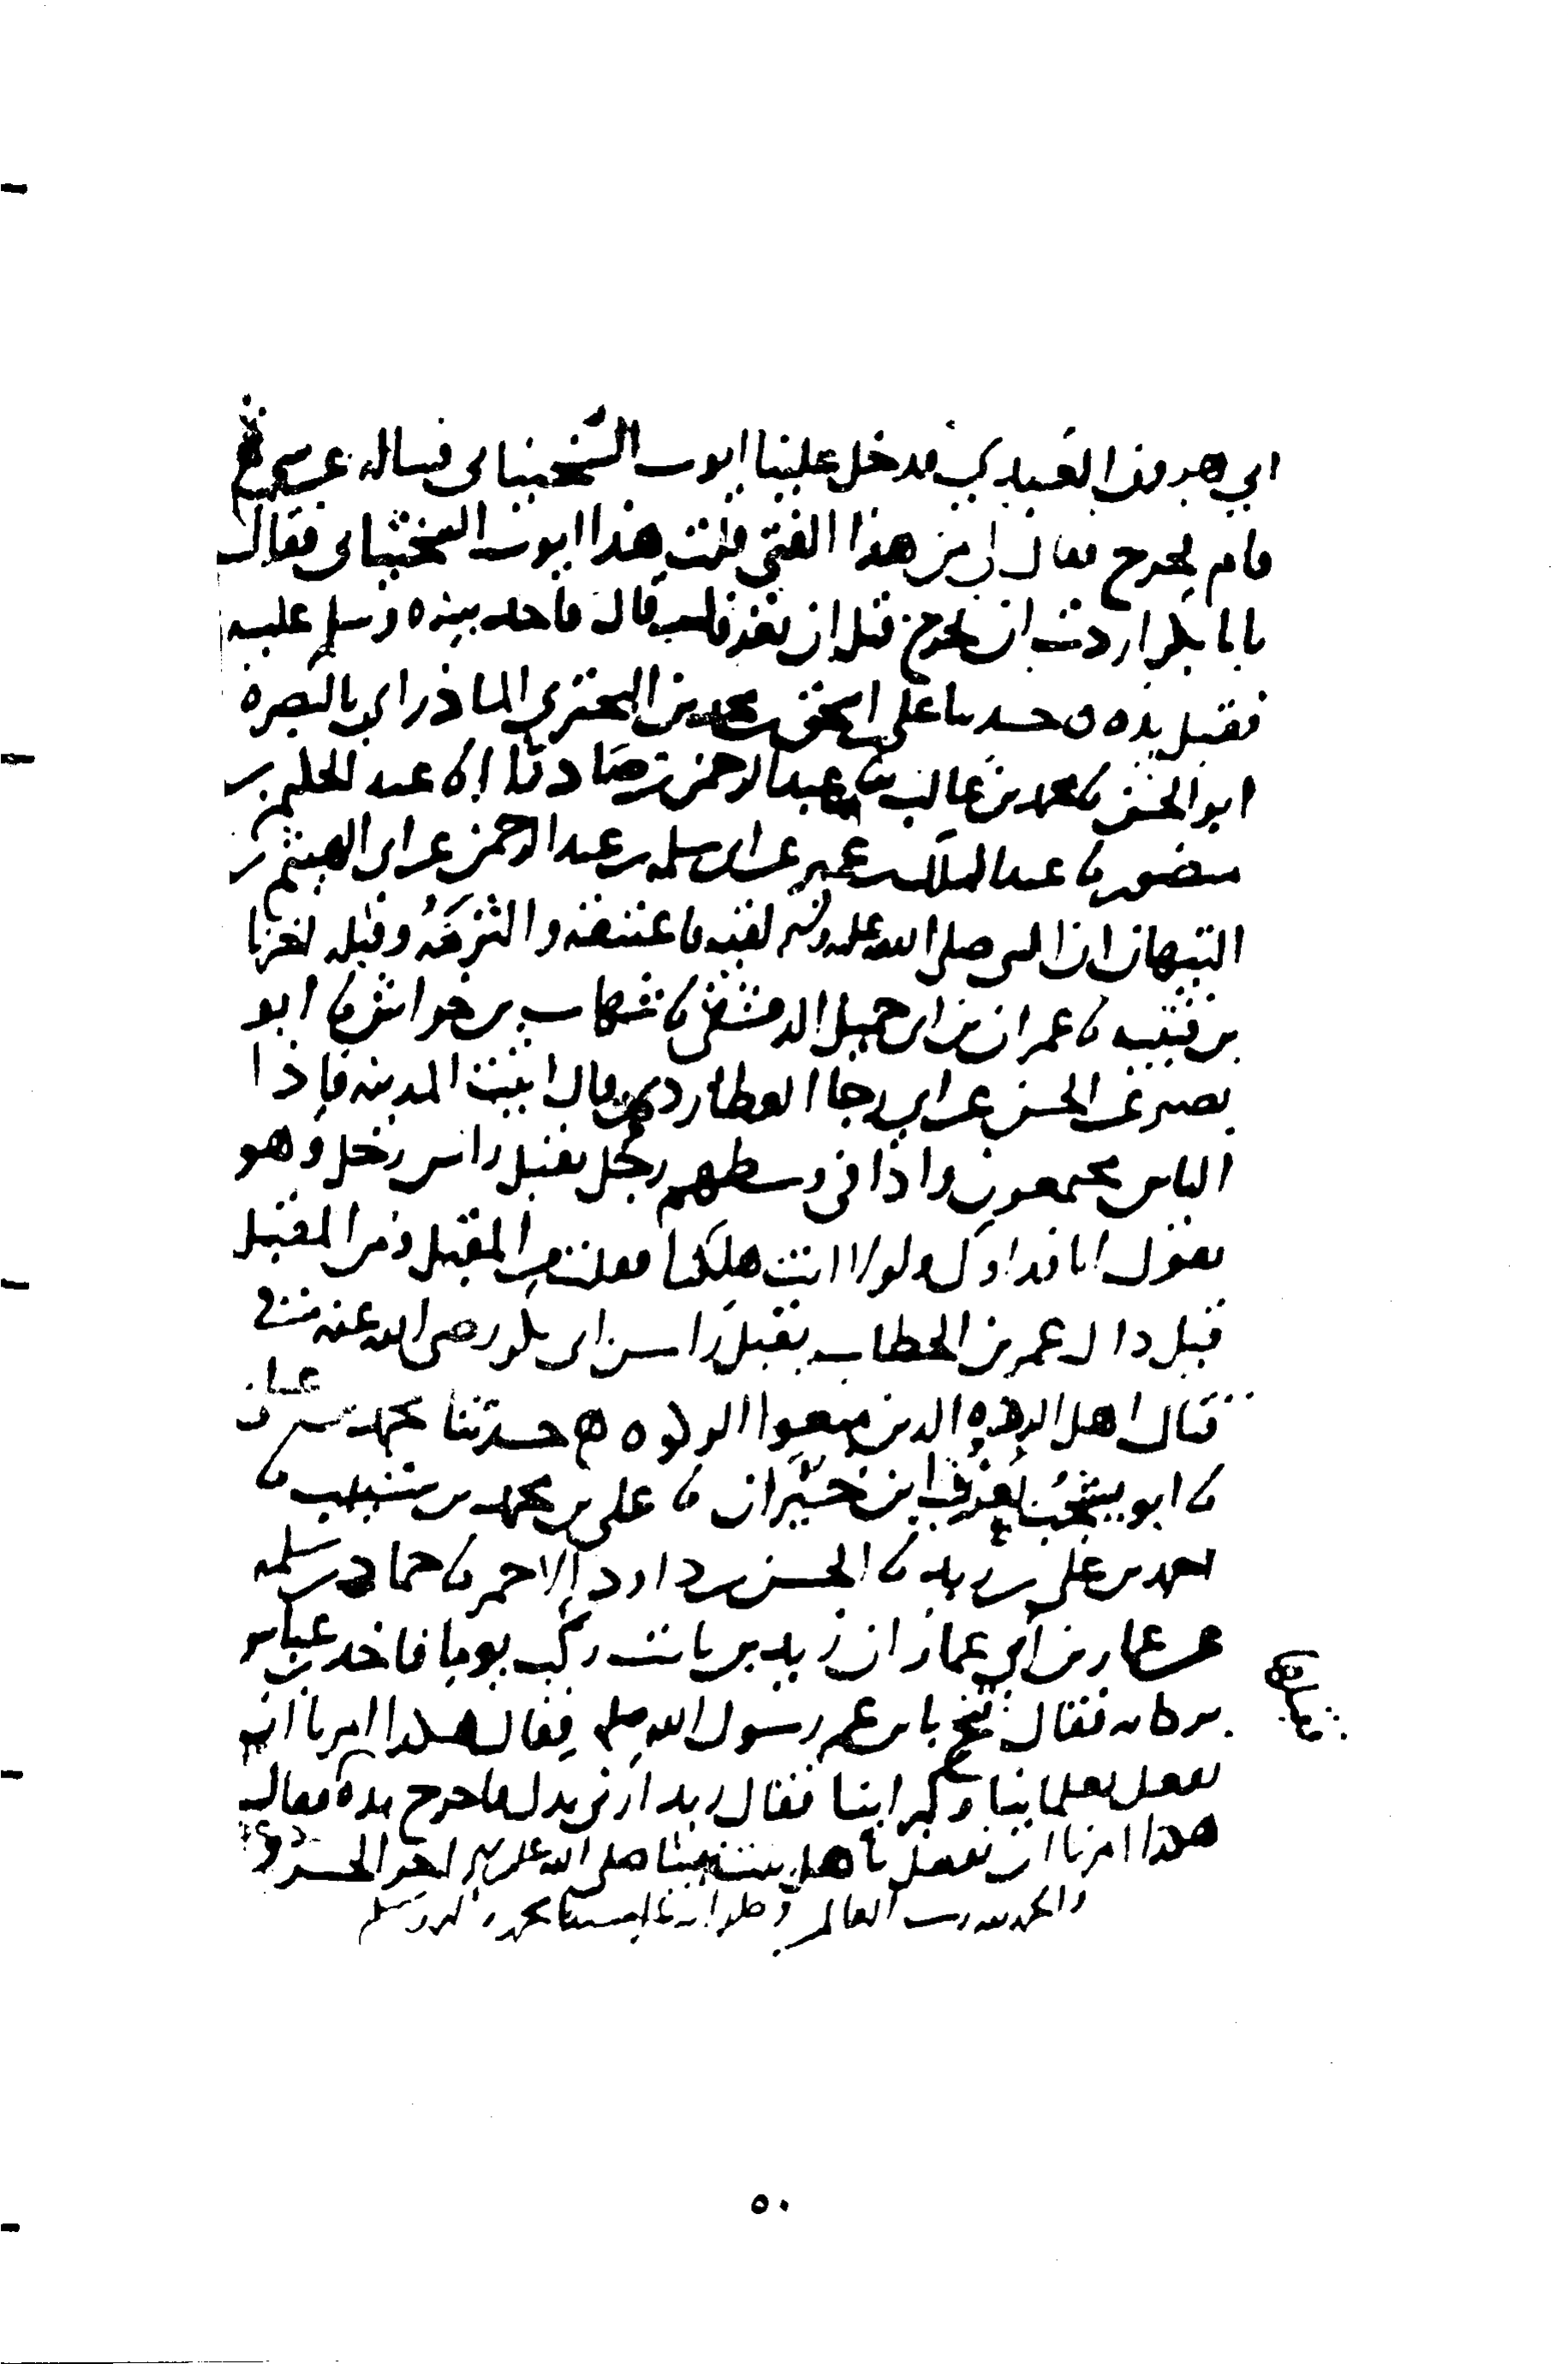 ابي هرون العبدي فدخل علينا ايوب السختياني فساله عن شي ثم
قام يخرج فقال لي من هذا الفتى قلت هذا ايوب السختياني فقال
يابا بكر اردت ان تخرج قبل ان نعرفك قال فاخذ بيده وسلم عليه
فقبل يده حدثنا علي اسحق بن محمد بن البختري الماذراي بالبصره
ابو الحسن نا محمد بن غالب نا عبد الرحمن بن صادنا انا عبد الحكيم بن
منصور نا عبد الملك بن عمير عن ابي سلمه بن عبد الرحمن عن ابي الهيثم بن
التيهان ان النبي صلى الله عليه وسلم لقيه فاعتنقه والتزمه وقبله اخبرنا
بن قتيبه نا عمران بن ابي جميل الدمشقي نا شهاب بن خراش نا ابو
نصر عن الحسن عن ابي رجا العطاردي قال اتيت المدينه فاذا
الناس مجتمعون واذا في وسطهم رجل يقبل راس رجل وهو
يقول انا فداوك ولولا انت هلكنا فقلت من المقبل ومن المقبل
قيل ذاك عمر بن الخطاب يقبل راس ابي بكر رضي الله عنه في
قتال اهل الرده الذين منعوا الزكوه حدثنا محمد بن
نا ابو يشجب يعرف ابن خيران نا علي بن محمد بن شبيب نا
احمد بن علي بن زيد نا الحسن بن داود الاحمر نا حماد بن سلمه
عن عمار بن ابي عمار ان زيد بن ثابت ركب يوما فاخذ ابن عباس
بركابه فقال تنح يابن عم رسول الله صلى فقال هكذا امرنا ان
نفعل بعلماينا وكبراينا فقال زيد ارني يدك فاخرج يده فقال
هكذا امرنا ان نفعل باهل بيت نبينا صلى الله عليه وسلم اخر الجزو
والحمد لله رب العالمين وصلواته على سيدنا محمد واله وسلم
٥٠